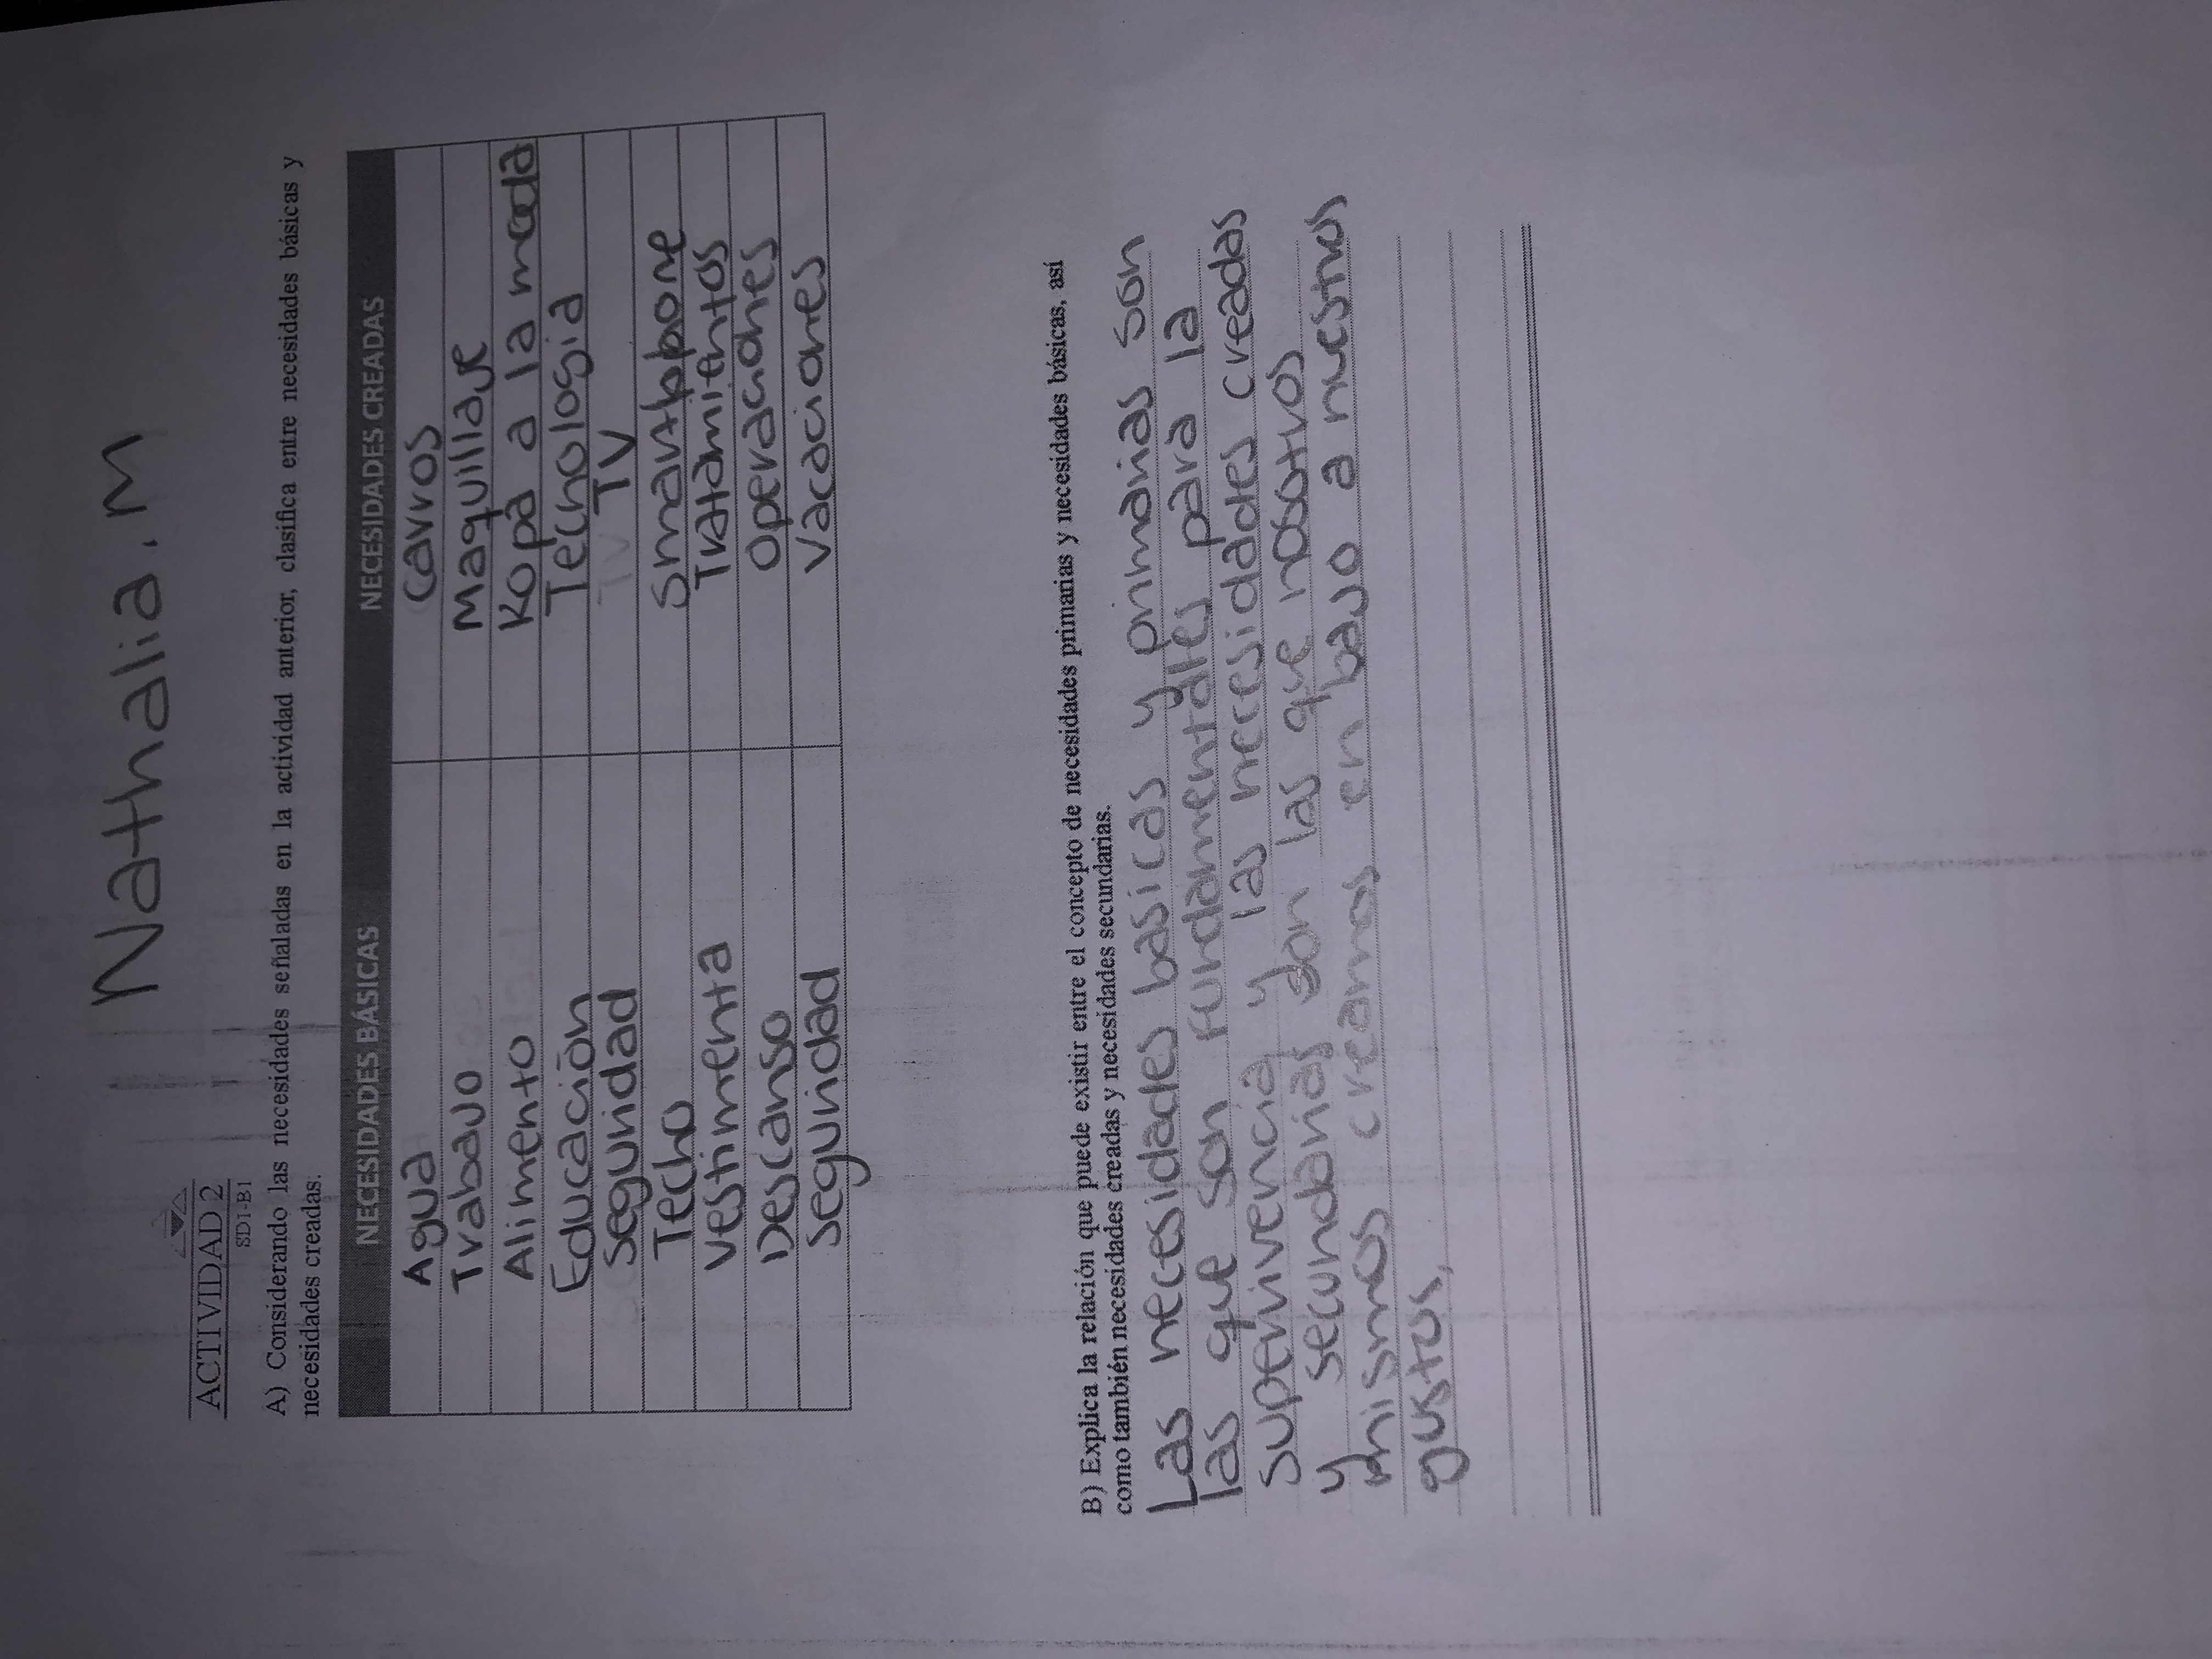 Nathalia.M
ACTIVIDAD 2
SD1-B1
A) Considerando las necesidades señaladas en la actividad anterior, clasifica entre necesidades básicas y
necesidades creadas:
NECESIDADES BÁSICAS NECESIDADES CREADAS
Agua Carros
Trabajo Maquillaje
Alimento Ropa a la moda
Educación Tecnologia
Seguridad TV
Techo Smartphone
Vestimenta Tratamientos
Descanso Operaciones
Seguridad Vacaciones
B) Explica la relación que puede existir entre el concepto de necesidades primarias y necesidades básicas, así
como también necesidades creadas y necesidades secundarias.
Las necesidades basicas y primarias son
las que son fundamentales para la
supervivencia y las necesidades creadas
y secundarias son las que nosotros
mismos creamos en bajo a nuestros
gustos.